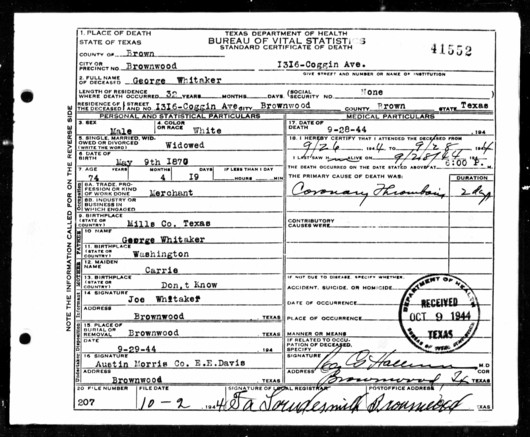 1. PLACE OF DEATH
STATE OF TEXAS
TEXAS DEPARTMENT OF HEALTH
BUREAU OF VITAL STATISTICS
STANDARD CERTIFICATE OF DEATH
41552
COUNTY OF Brown
CITY OR PRECINCT NO. Brownwood 1316-Coggin Ave.
GIVE STREET AND NUMBER OR NAME OF INSTITUTION
2. FULL NAME OF DECEASED George Whitaker
LENGTH OF RESIDENCE WHERE DEATH OCCURRED 32 YEARS MONTHS DAYS (SOCIAL SECURITY NO. None
RESIDENCE OF THE DECEASED STREET AND NO. 1316-Coggin Ave CITY Brownwood COUNTY Brown STATE Texas
PERSONAL AND STATISTICAL PARTICULARS
MEDICAL PARTICULARS
3. SEX Male
4. COLOR OR RACE White
5. SINGLE, MARRIED, WIDOWED OR DIVORCED (WRITE THE WORD) Widowed
6. DATE OF BIRTH May 9th 1870
7. AGE YEARS MONTHS DAYS IF LESS THAN 1 DAY
74 4 19 HOURS MIN
8A. TRADE, PROFESSION OR KIND OF WORK DONE Merchant
8B. INDUSTRY OR BUSINESS IN WHICH ENGAGED
9. BIRTHPLACE (STATE OR COUNTRY) Mills Co. Texas
10. NAME George Whitaker
11. BIRTHPLACE (STATE OR COUNTRY) Washington
12. MAIDEN NAME Carrie
13. BIRTHPLACE (STATE OR COUNTRY) Don,t Know
14. SIGNATURE Joe Whitaker
ADDRESS Brownwood TEXAS
15. PLACE OF BURIAL OR REMOVAL Brownwood TEXAS
DATE 9-29-44 194
16. SIGNATURE Austin Morris Co. E.E.Davis
ADDRESS Brownwood TEXAS
17. DATE OF DEATH 9-28-44 194
18. I HEREBY CERTIFY THAT I ATTENDED THE DECEASED FROM
9/26 1944 TO 9/28 1944
I LAST SAW ALIVE ON 9/28/44
THE DEATH OCCURRED ON THE DATE STATED ABOVE AT 6:00 P. M.
THE PRIMARY CAUSE OF DEATH WAS: DURATION
Coronary Thrombosis
CONTRIBUTORY CAUSES WERE
IF NOT DUE TO DISEASE, SPECIFY WHETHER:
ACCIDENT, SUICIDE, OR HOMICIDE
DATE OF OCCURRENCE
PLACE OF OCCURRENCE
MANNER OR MEANS
IF RELATED TO OCCUPATION OF DECEASED, SPECIFY
SIGNATURE M.D.
ADDRESS Brownwood, TEXAS
DEPARTMENT OF HEALTH
RECEIVED
OCT 9 1944
TEXAS
BUREAU OF VITAL STATISTICS
20. FILE NUMBER FILE DATE SIGNATURE OF LOCAL REGISTRAR POSTOFFICE ADDRESS
207 10-2 1944 Brownwood TEXAS
NOTE THE INFORMATION CALLED FOR ON THE REVERSE SIDE
FATHER
MOTHER